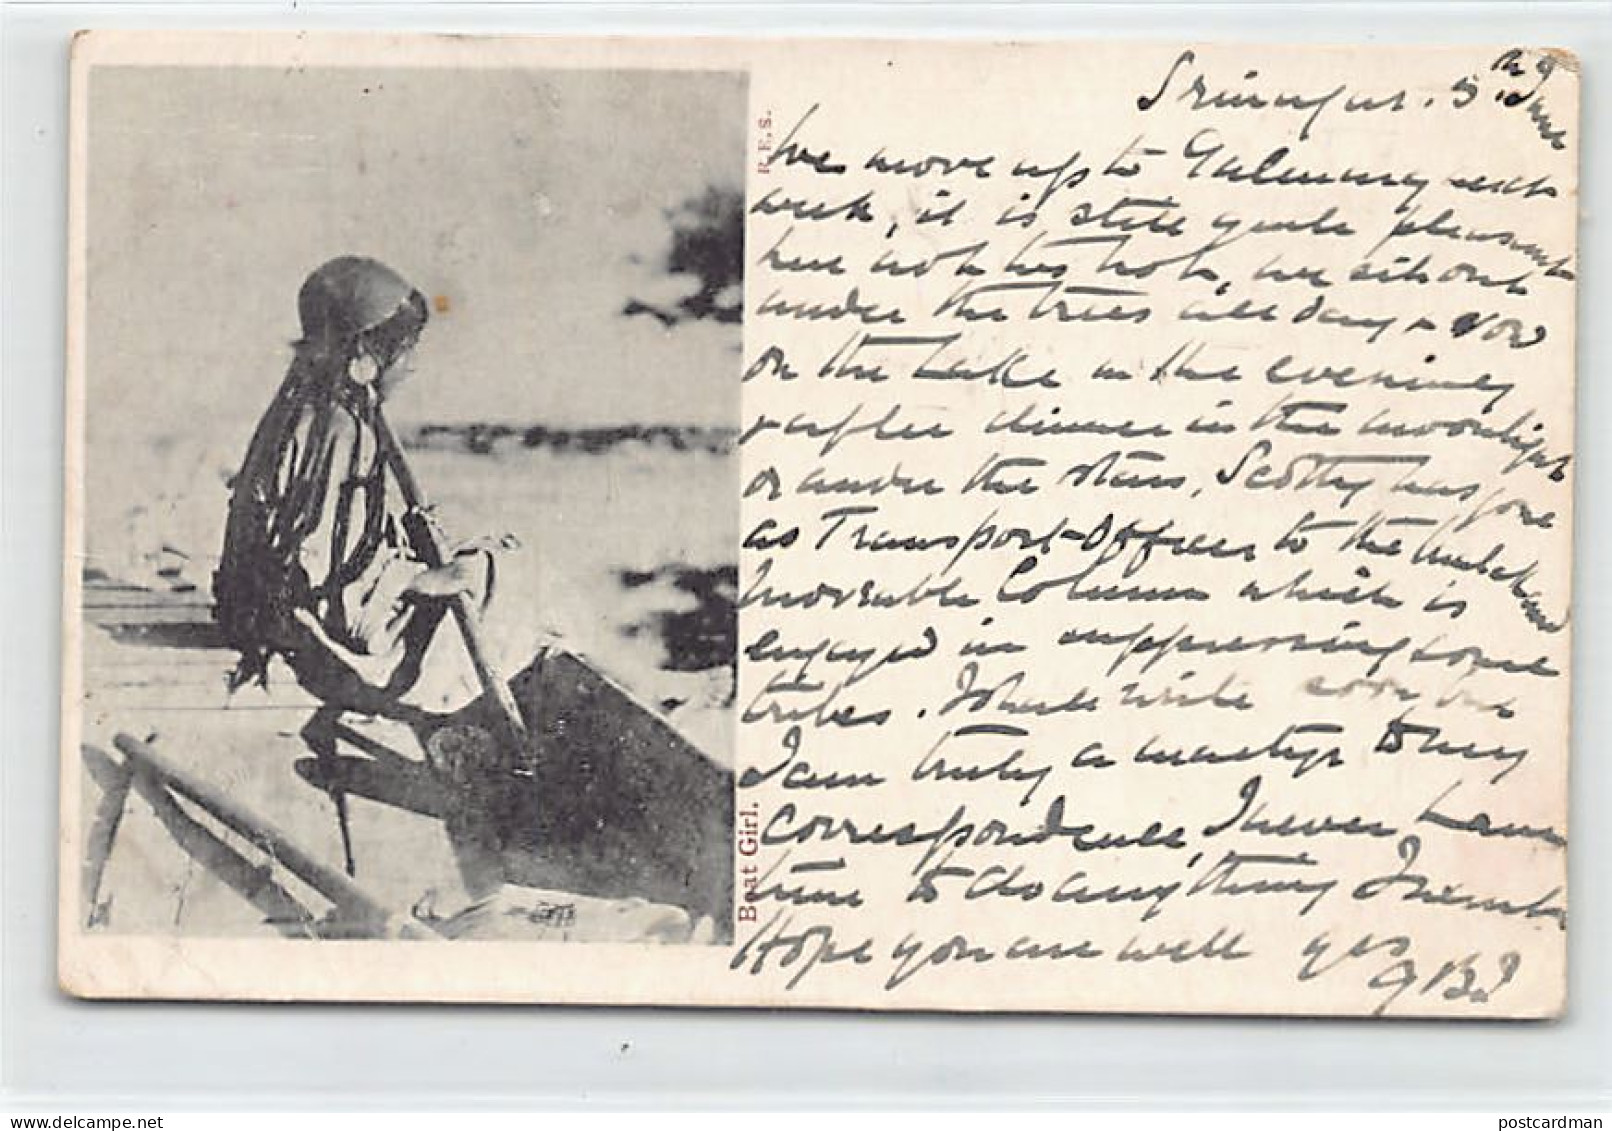 Srinagar. 5th June
We move up to Gulmurg next
week, it is still quite pleasant
here not too hot, we sit out
under the trees all day & row
on the Lake in the evening
& after dinner in the moonlight
or under the stars, Scotty has gone
as Transport-Officer to the
Moveable Column which is
engaged in suppressing some
tribes. I shall write soon but
I am truly a martyr to my
correspondence, I never have
time to do anything I
Hope you are well yrs
R.E.S.
Boat Girl.
postcardman